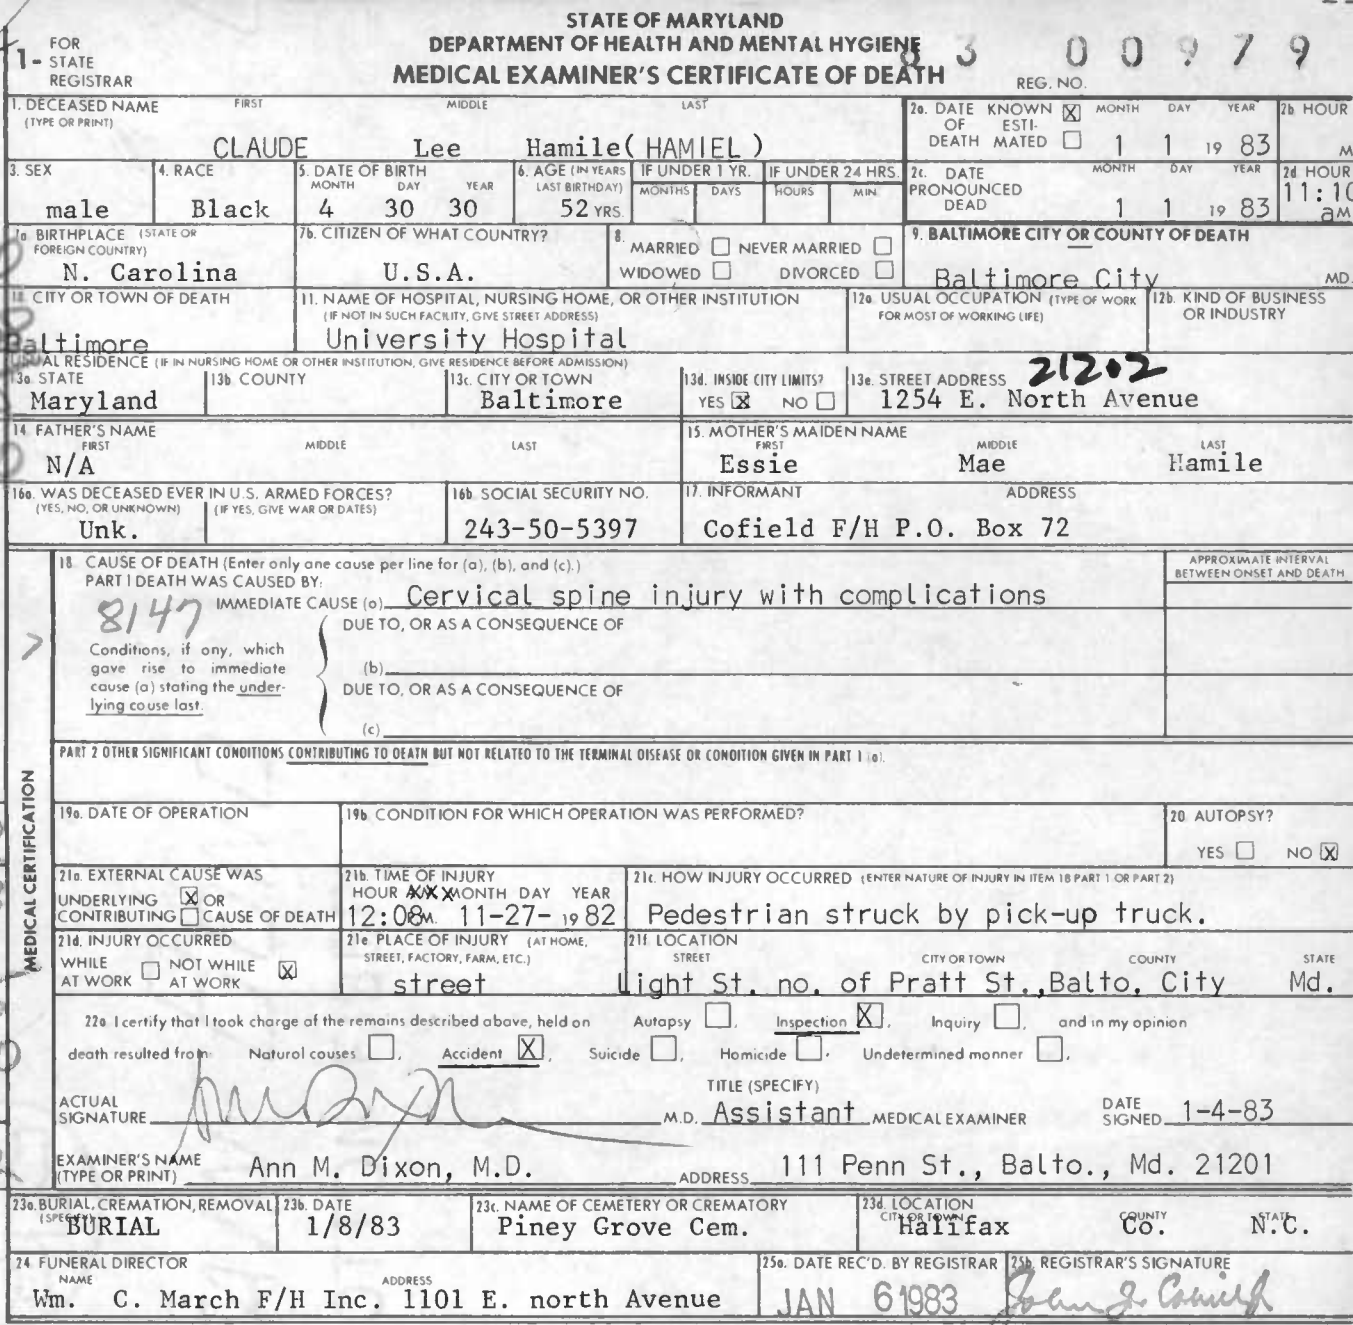 STATE OF MARYLAND
DEPARTMENT OF HEALTH AND MENTAL HYGIENE
MEDICAL EXAMINER'S CERTIFICATE OF DEATH
1- FOR STATE REGISTRAR
83 00979
REG. NO.
1. DECEASED NAME FIRST MIDDLE LAST
(TYPE OR PRINT)
CLAUDE Lee Hamile( HAMIEL )
2a. DATE KNOWN X MONTH DAY YEAR 2b HOUR
OF ESTI-
DEATH MATED 1 1 19 83 M
3. SEX 4. RACE 5. DATE OF BIRTH 6. AGE (IN YEARS IF UNDER 1 YR. IF UNDER 24 HRS.
MONTH DAY YEAR LAST BIRTHDAY) MONTHS DAYS HOURS MIN.
male Black 4 30 30 52 YRS.
2c. DATE MONTH DAY YEAR 2d HOUR
PRONOUNCED
DEAD 1 1 19 83 11:10 aM
7a BIRTHPLACE (STATE OR
FOREIGN COUNTRY)
N. Carolina
7b. CITIZEN OF WHAT COUNTRY?
U.S.A.
8. MARRIED NEVER MARRIED
WIDOWED DIVORCED
9. BALTIMORE CITY OR COUNTY OF DEATH
Baltimore City MD.
CITY OR TOWN OF DEATH
Baltimore
11. NAME OF HOSPITAL, NURSING HOME, OR OTHER INSTITUTION
(IF NOT IN SUCH FACILITY, GIVE STREET ADDRESS)
University Hospital
12a USUAL OCCUPATION (TYPE OF WORK
FOR MOST OF WORKING LIFE)
12b. KIND OF BUSINESS
OR INDUSTRY
USUAL RESIDENCE (IF IN NURSING HOME OR OTHER INSTITUTION, GIVE RESIDENCE BEFORE ADMISSION)
13a STATE 13b COUNTY 13c. CITY OR TOWN 13d. INSIDE CITY LIMITS? 13e. STREET ADDRESS 21202
Maryland Baltimore YES X NO 1254 E. North Avenue
14 FATHER'S NAME
FIRST MIDDLE LAST
N/A
15. MOTHER'S MAIDEN NAME
FIRST MIDDLE LAST
Essie Mae Hamile
16a. WAS DECEASED EVER IN U.S. ARMED FORCES?
(YES, NO, OR UNKNOWN) (IF YES, GIVE WAR OR DATES)
Unk.
16b SOCIAL SECURITY NO.
243-50-5397
17. INFORMANT ADDRESS
Cofield F/H P.O. Box 72
MEDICAL CERTIFICATION
18 CAUSE OF DEATH (Enter only one cause per line for (a), (b), and (c).)
PART I DEATH WAS CAUSED BY:
APPROXIMATE INTERVAL
BETWEEN ONSET AND DEATH
8147
IMMEDIATE CAUSE (a) Cervical spine injury with complications
DUE TO, OR AS A CONSEQUENCE OF
Conditions, if any, which
gave rise to immediate
cause (a) stating the under-
lying cause last.
(b)
DUE TO, OR AS A CONSEQUENCE OF
(c)
PART 2 OTHER SIGNIFICANT CONDITIONS CONTRIBUTING TO DEATH BUT NOT RELATED TO THE TERMINAL DISEASE OR CONDITION GIVEN IN PART 1 (a).
19a. DATE OF OPERATION
19b CONDITION FOR WHICH OPERATION WAS PERFORMED?
20 AUTOPSY?
YES NO X
21a. EXTERNAL CAUSE WAS
UNDERLYING X OR
CONTRIBUTING CAUSE OF DEATH
21b. TIME OF INJURY
HOUR MONTH DAY YEAR
12:08 M. 11-27- 19 82
21c. HOW INJURY OCCURRED (ENTER NATURE OF INJURY IN ITEM 18 PART 1 OR PART 2)
Pedestrian struck by pick-up truck.
21d. INJURY OCCURRED
WHILE NOT WHILE X
AT WORK AT WORK
21e PLACE OF INJURY (AT HOME,
STREET, FACTORY, FARM, ETC.)
street
21f LOCATION
STREET CITY OR TOWN COUNTY STATE
Light St. no. of Pratt St.,Balto. City Md.
22a I certify that I took charge of the remains described above, held on Autopsy , Inspection X , Inquiry , and in my opinion
death resulted from Natural causes , Accident X , Suicide , Homicide , Undetermined manner .
TITLE (SPECIFY)
ACTUAL
SIGNATURE M.D. Assistant MEDICAL EXAMINER DATE SIGNED 1-4-83
EXAMINER'S NAME
(TYPE OR PRINT) Ann M. Dixon, M.D. ADDRESS 111 Penn St., Balto., Md. 21201
23a. BURIAL, CREMATION, REMOVAL
(SPECIFY)
BURIAL
23b. DATE
1/8/83
23c. NAME OF CEMETERY OR CREMATORY
Piney Grove Cem.
23d. LOCATION
CITY OR TOWN COUNTY STATE
Halifax Co. N.C.
24 FUNERAL DIRECTOR
NAME ADDRESS
Wm. C. March F/H Inc. 1101 E. north Avenue
25a. DATE REC'D. BY REGISTRAR
JAN 6 1983
25b. REGISTRAR'S SIGNATURE